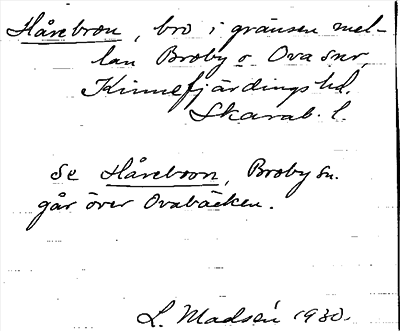 Hårebron, bro i gränsen mel-
lan Broby o Ova snr,
Kinnefjärdings hd.
Skarab. l.
Se Hårebron, Broby sn.
går över Ovabäcken.
L. Madsén 1930.